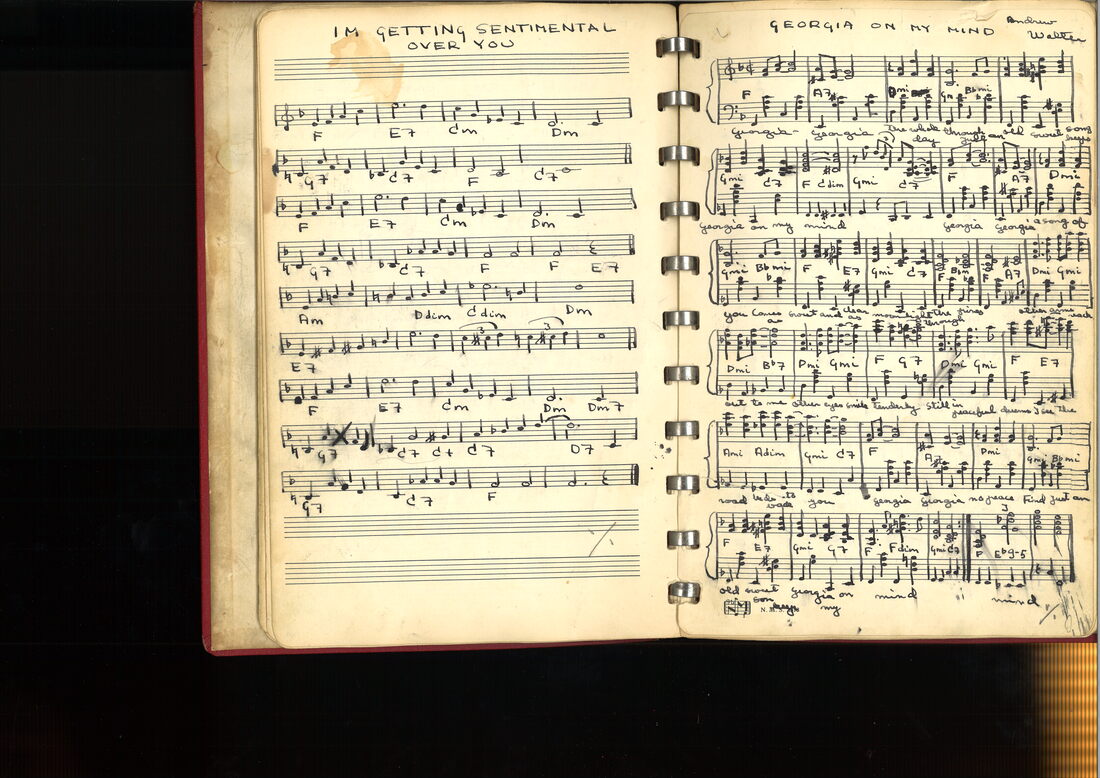 IM GETTING SENTIMENTAL
OVER YOU
F E7 Cm Dm
G7 C7 F C7
F E7 Cm Dm
G7 C7 F F E7
Am Ddim Cdim Dm
3 3
E7
F E7 Cm Dm Dm7
G7 C7 C+ C7 F D7
G7 C7 F
GEORGIA ON MY MIND
Andrew
Walter
F A7 Dmi Gm Bbmi
Georgia - Georgia The whole through old sweet song
day
Gmi C7 F Cdim Gmi C7 F A7 Dmi
Georgia on my mind Georgia Georgia a song of
Gmi Bbmi F E7 Gmi C7 F Bbm F A7 Dmi Gmi
you comes sweet and clear moonlight the pines other arms reach
as as through
Dmi Bb7 Dmi Gmi F G7 Dmi Gmi F E7
out to me other eyes smile tenderly still in peaceful dreams I see the
Ami Adim Gmi C7 F A7 Dmi Gmi Bbmi
road leads to you Georgia Georgia no peace Find just an
back
3
F E7 Gmi G7 F Fdim Gmi C7 F Eb9-5
old sweet Georgia on mind mind
song my